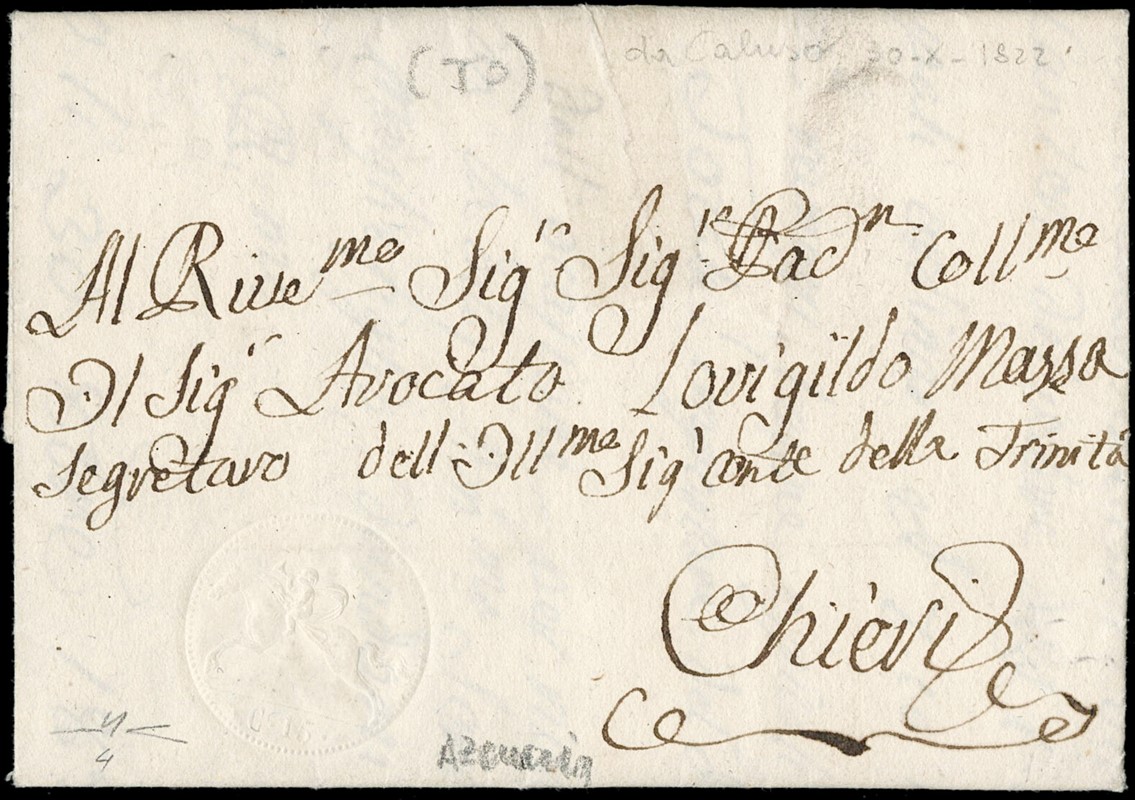 (TO) da Caluso 30-X-1822
Al Rive.mo Sig.r Sig.r Pad.n Coll.mo
Il Sig.r Avocato Lovigildo Massa
Segretaro dell Ill.mo Sig.r Conte della Trinità
Chieri
C. 15.
4